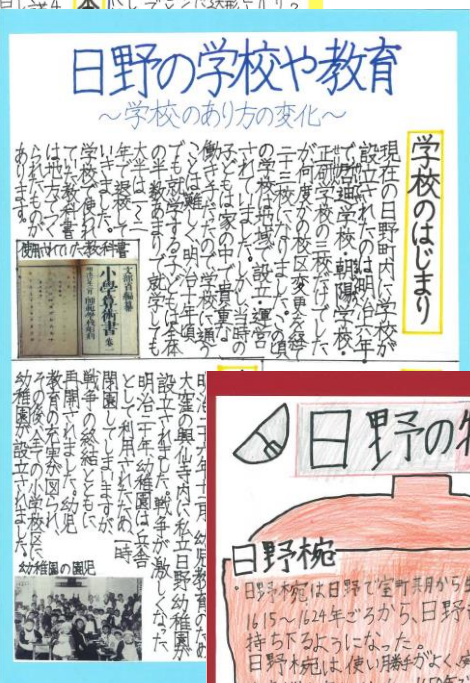 日野の学校や教育
～学校のあり方の変化～
学校のはじまり
現在の日野町内に学校が
設立されたのは明治六年
で啓迪学校・朝陽学校・
正明学校の三校だけでした
が何度かの校区変更を経て
二十三校になりました。この頃
の学校は地域で設立・運営
されていました。しかし当時の
子どもは家の中で貴重な
働き手だったので学校に通う
ことは難しく、明治十年頃
でも就学する子どもは全体
の半数あまりで就学しても
大半は一、二
年で退校して
いきました。
学校で使われ
ていた教科書
は地方でつく
られたものが
あります。
使用されていた教科書
文部省編纂
小學算術書
明治二十六年十一月、幼児教育のため
大窪の興仙寺内に私立日野幼稚園が
設立されました。戦争が激しくなった
明治二十年、幼稚園は兵舎
として利用されたため一時
閉園してしまいますが、
戦争の終結とともに
再開されました。幼児
教育の充実が図られ、
その後、全ての小学校区に
幼稚園が設立されました。
幼稚園の園児
日野の
日野椀
・日野椀は日野で室町期から
1615～1624年ごろから、日野
持ち下るようになった。
日野椀は、使い勝手がよく、